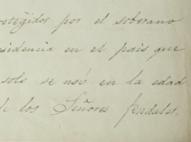 otegidos por el soberano
sidencia en el pais que
solo se usó en la edad
de los Señores feudales.